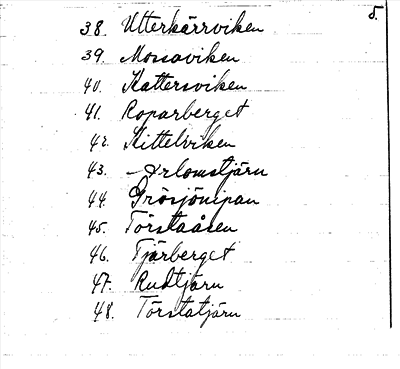 5.
38. Utterkärrviken
39. Mossaviken
40. Kattersviken
41. Roparberget
42. Kittelviken
43. Arlomstjärn
44. Grösjönipan
45. Törstaåsen
46. Tjärberget
47. Rudtjärn
48. Törstatjärn